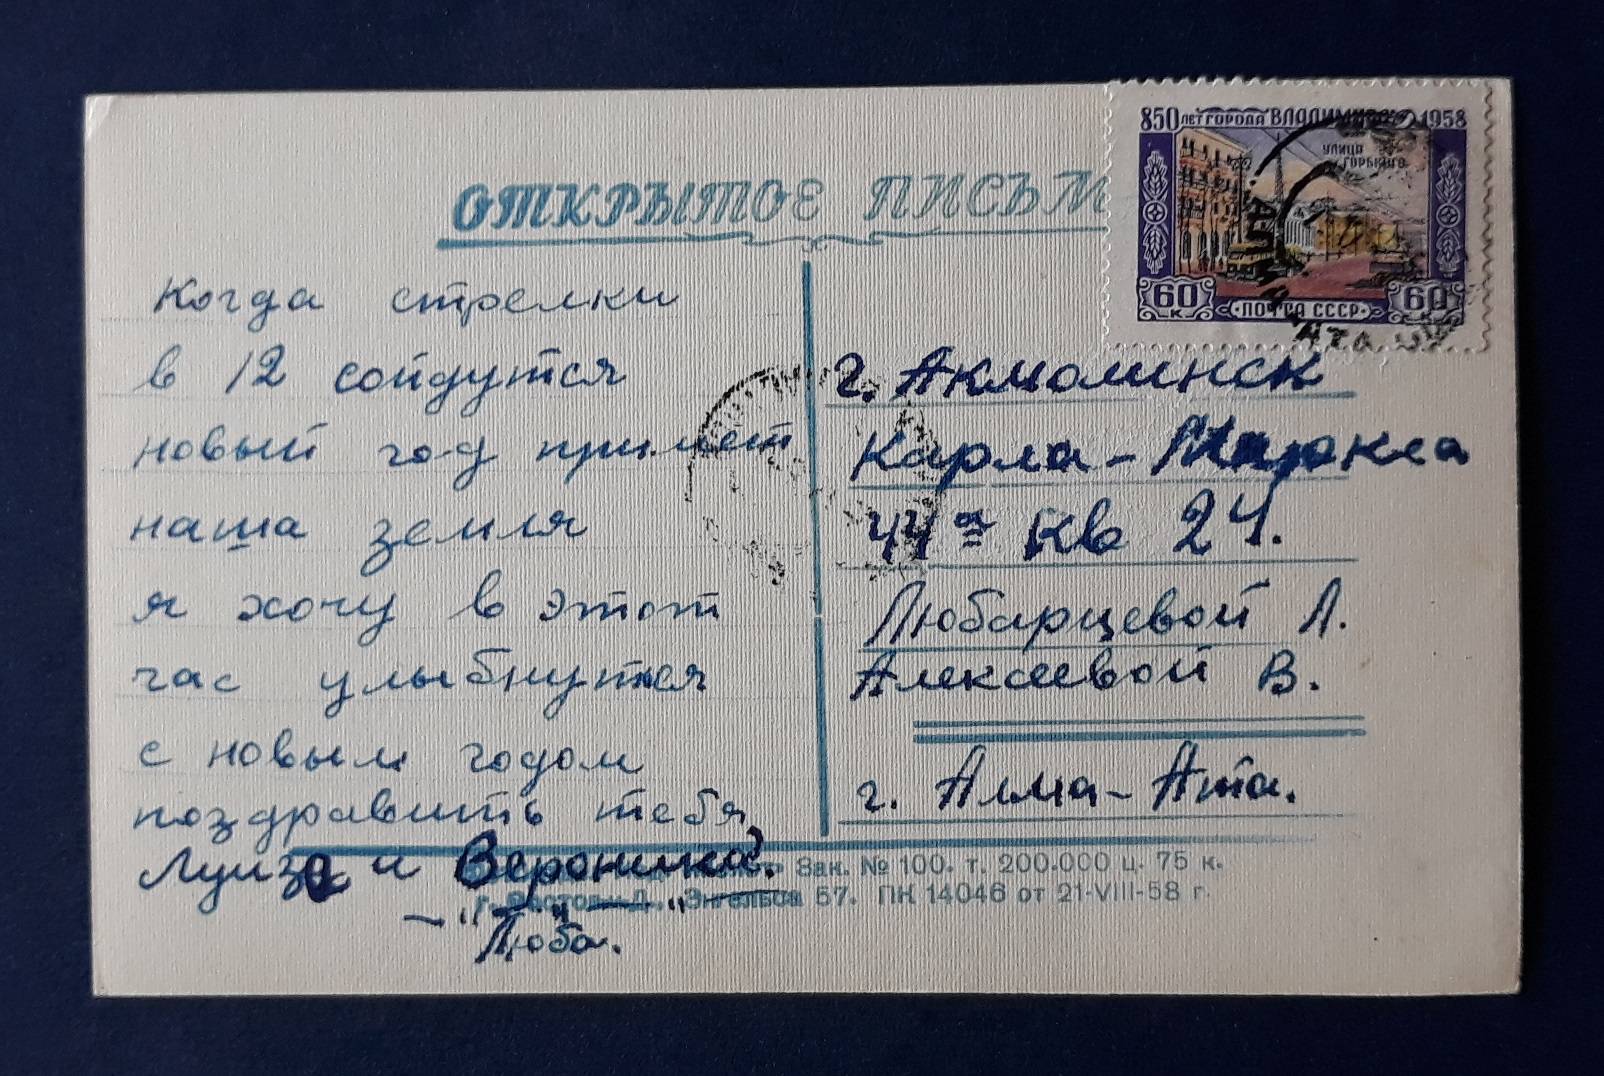 ОТКРЫТОЕ ПИСЬМ
850 ЛЕТ ГОРОДА ВЛАДИМИРА 1958
УЛИЦА
ГОРЬКОГО
60 к ПОЧТА СССР 60
АЛМА-АТА
когда стрелки
в 12 сойдутся
новый год примет
наша земля
я хочу в этот
час улыбнутся
с новым годом
поздравить тебя
Луиза и Вероника.
— " — " — "
Люба.
г. Акмолинск
Карла-Маркса
44а кв 24.
Любарцевой Л.
Алексеевой В.
г. Алма-Ата.
Зак. № 100. т. 200.000 ц. 75 к.
г. Ростов-Д., Энгельса 57. ПК 14046 от 21-VIII-58 г.